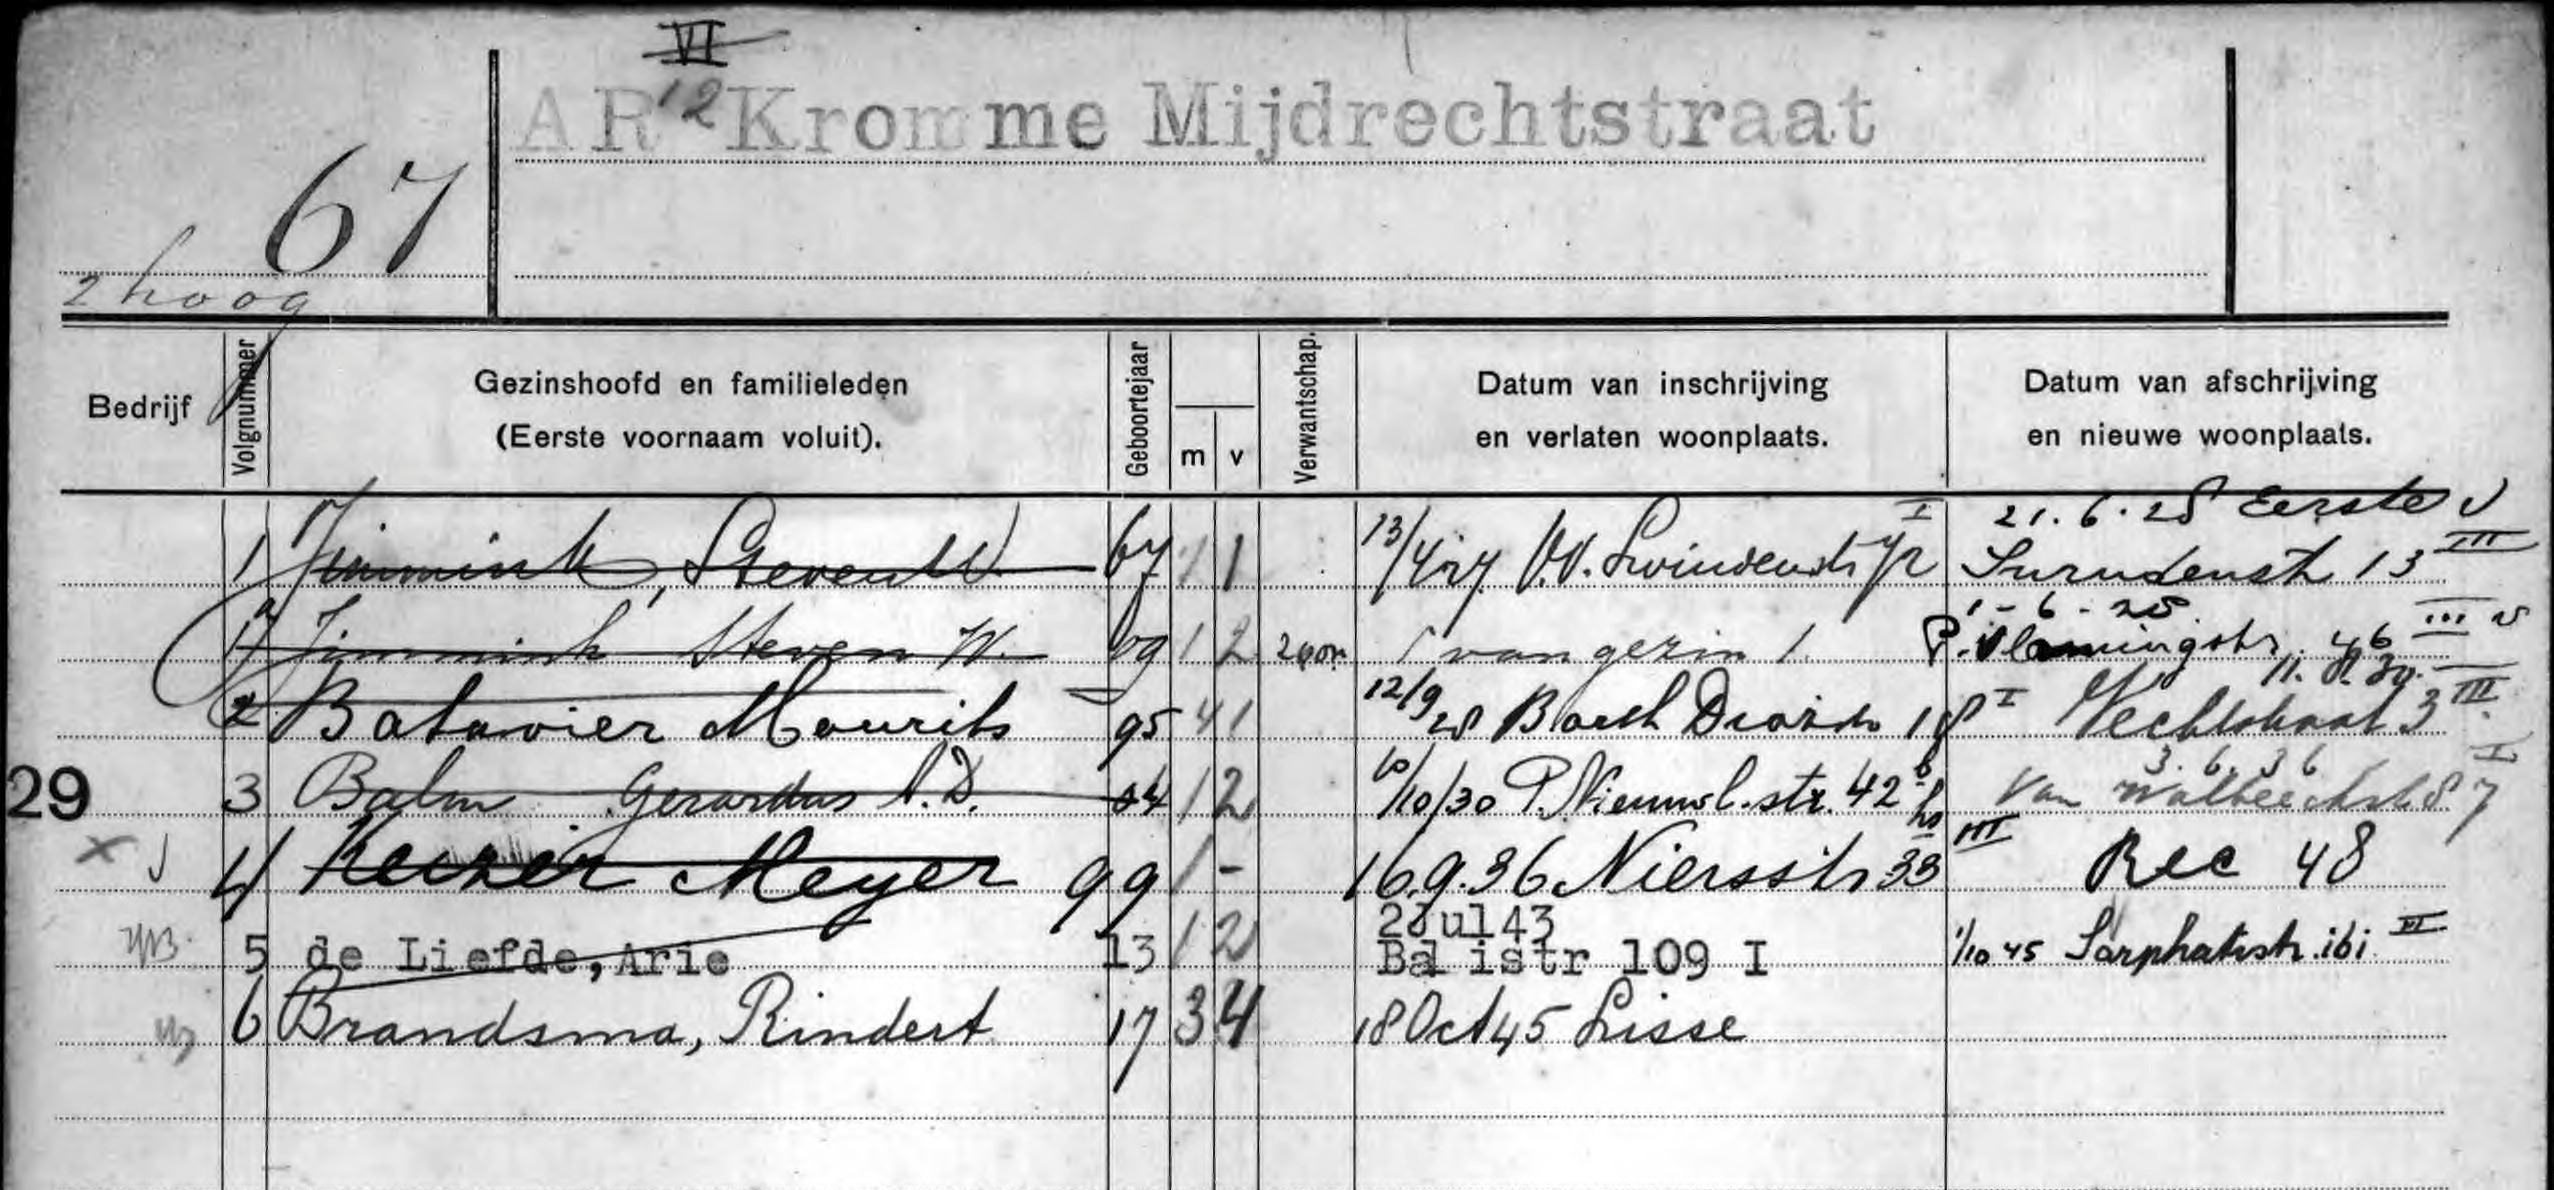 VI
AR 12 Kromme Mijdrechtstraat
67
2 hoog
Bedrijf
Volgnummer
Gezinshoofd en familieleden
(Eerste voornaam voluit).
Geboortejaar
m v
Verwantschap.
Datum van inschrijving
en verlaten woonplaats.
Datum van afschrijving
en nieuwe woonplaats.
21.6.28 Eerste
1 Jimmink, Steven W 67 1 1 13/4 27 I III
13
1-6-28
Jimmink Steven W. 09 1 2 zoon van gezin 1. P. Vlamingstr. 46 III
2 Batavier Mourits 95 4 1 12/9 28 18 I Vechtstraat 3 III
3.6.36
29 3 Balm Gerardus 1 2 10/10/30 P. Nieuwl.str. 42 hs 87 I
4 Keizer Meyer 99 1 - 16.9.36 Niersstr 33 III Rec 48
2Jul43
5 de Liefde, Arie 13 1 2 Balistr 109 I 1/10 45 Sarphatistr. 161
6 Brandsma, Rindert 17 3 4 18 Oct 45 Lisse